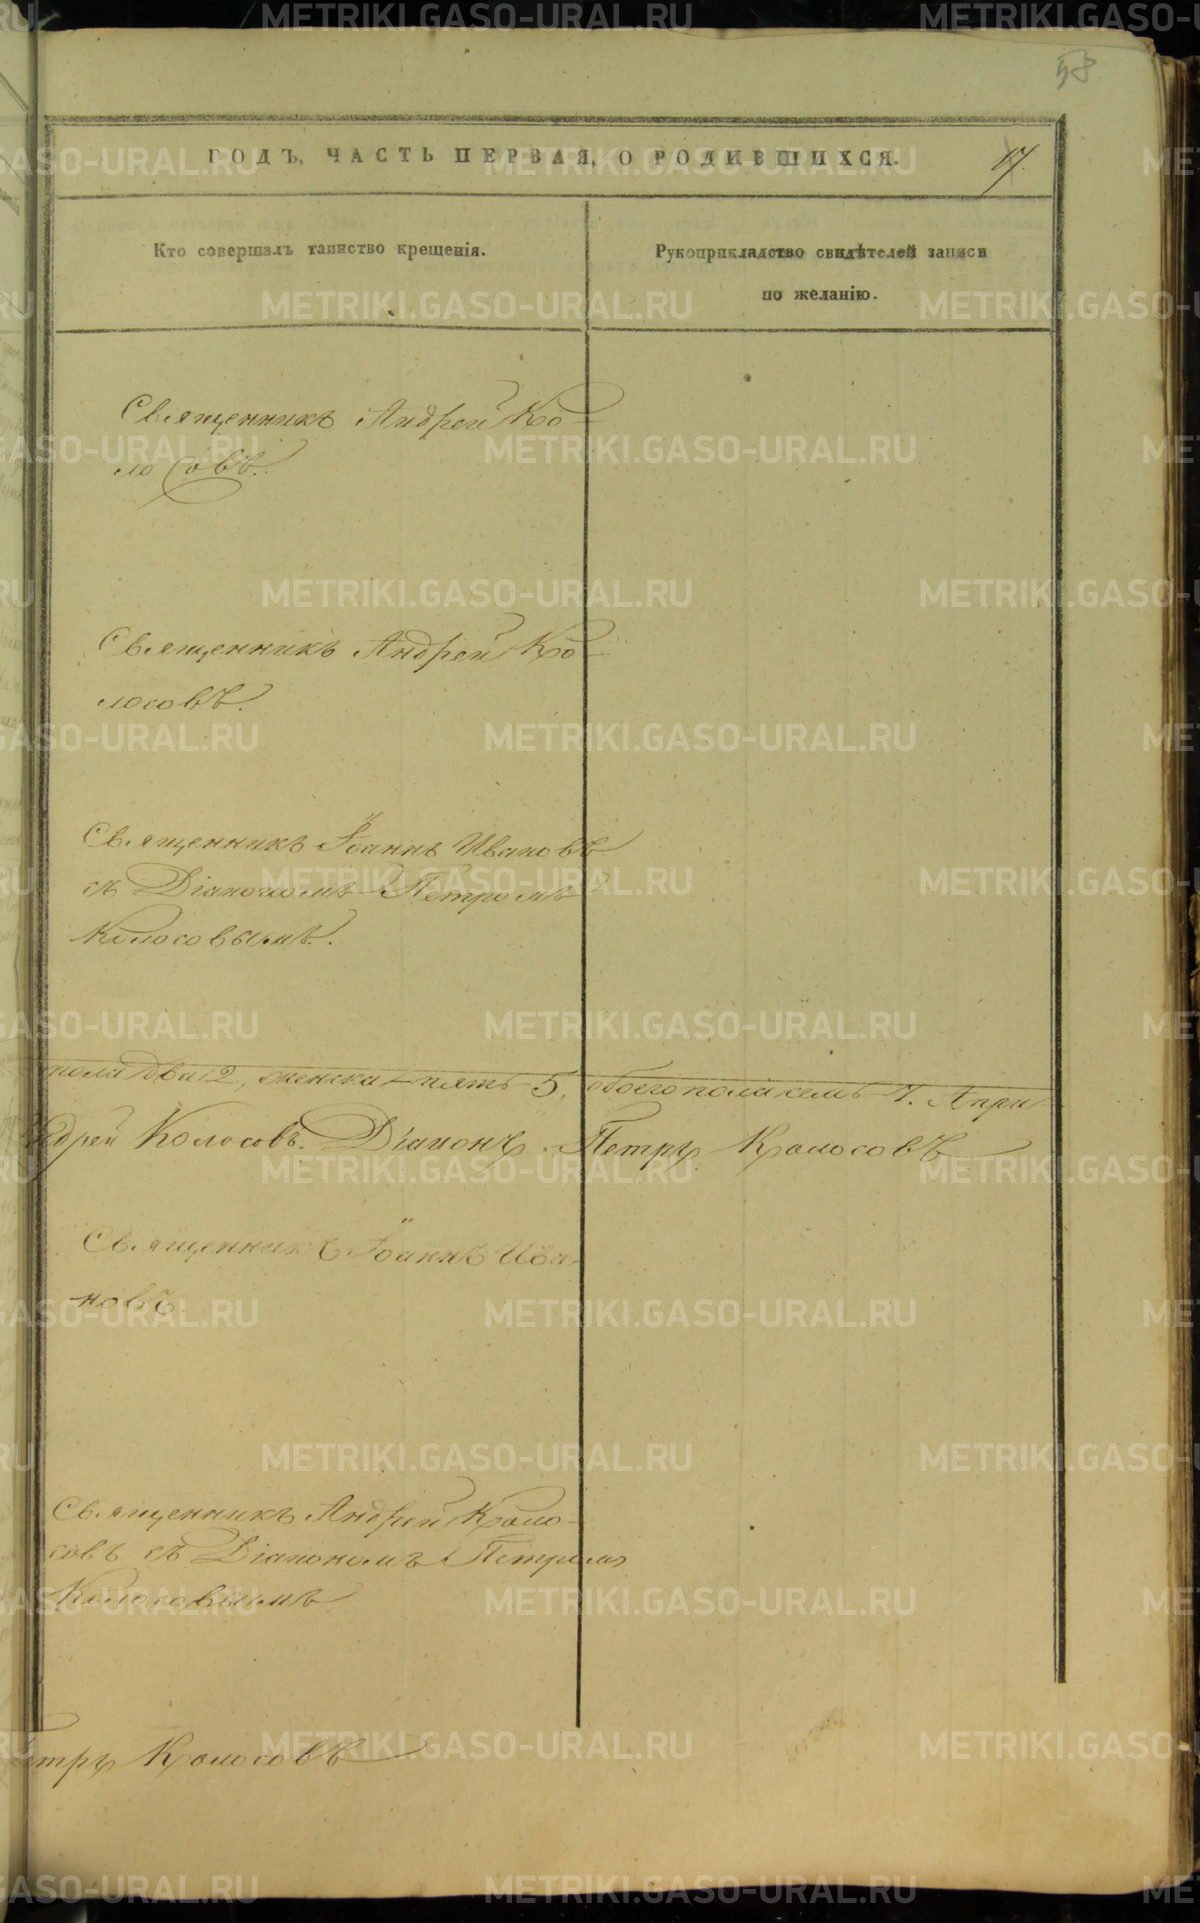 58
ГОДЪ, ЧАСТЬ ПЕРВАЯ, О РОДИВШИХСЯ. 17.
Кто совершалъ таинство крещенія.
Рукоприкладство свидѣтелей записи
по желанію.
Священникъ Андрей Ко-
лосовъ.
Священникъ Андрей Ко-
лосовъ.
Священникъ Іоаннъ Ивановъ
съ Діакономъ Петромъ
Колосовымъ.
пола два 2, женска - пять - 5, обоего пола семь - 7. Апри
ндрей Колосовъ. Діаконъ Петръ Колосовъ
Священникъ Іоаннъ Ива-
новъ.
Священникъ Андрей Коло-
совъ съ Діакономъ Петромъ
Колосовымъ.
етръ Колосовъ
METRIKI.GASO-URAL.RU